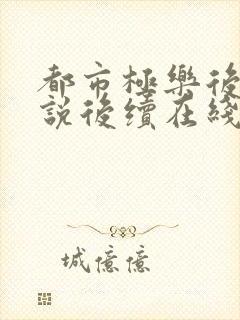 都市極樂後
說後續在綫
城億億